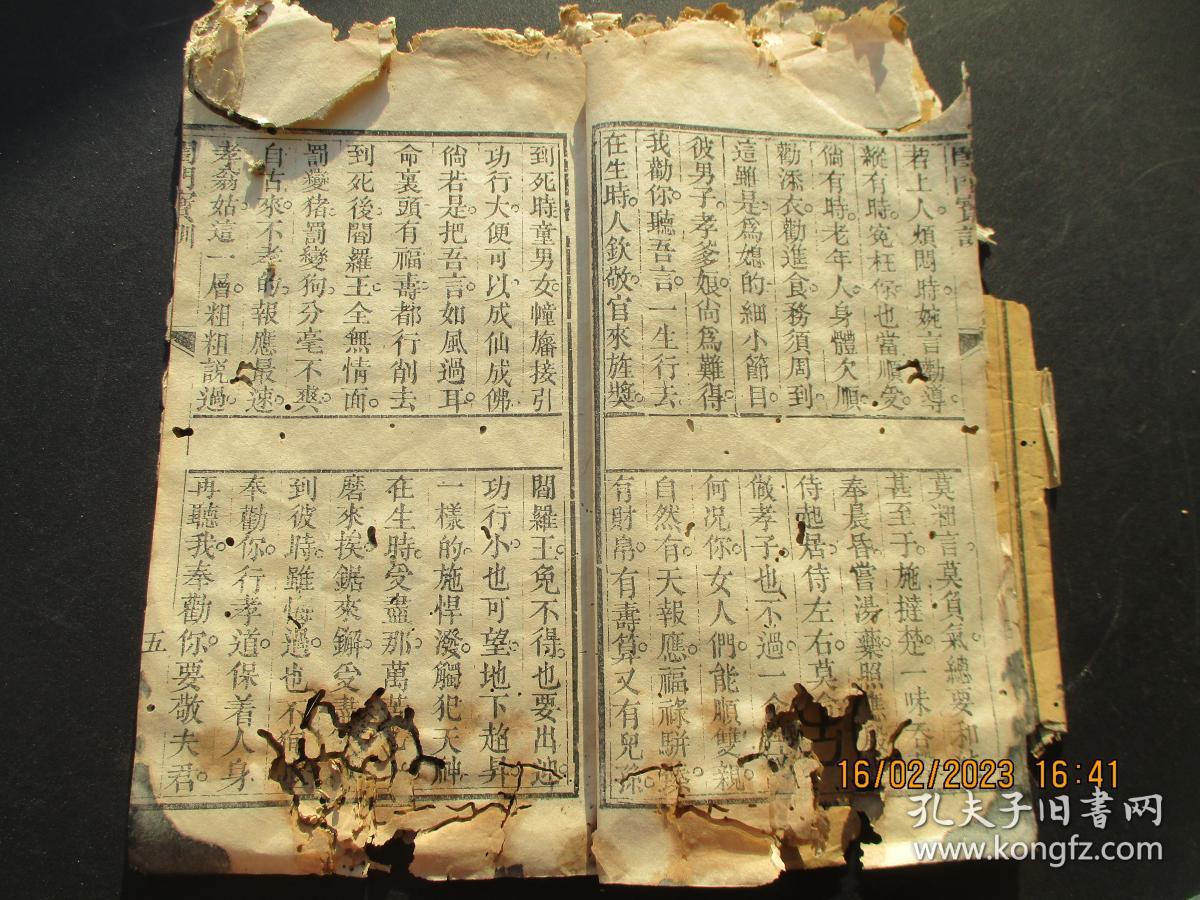 若上人煩悶時婉言勸導
莫粗言莫負氣總要和
縱有時冤枉你也當順受
甚至于施撻楚一味吞
倘有時老年人身體欠順
奉晨昏嘗湯藥照應
勸添衣勸進食務須周到
侍起居侍左右莫
這雖是爲媳的細小節目
做孝子也不過一
彼男子孝爹娘尙爲難得
何况你女人們能順雙親
我勸你聽吾言一生行去
自然有天報應福祿駢臻
在生時人欽敬官來旌獎
有財帛有壽算又有兒孫
到死時童男女幢旛接引
閻羅王免不得也要出迎
功行大便可以成仙成佛
功行小也可望地下超昇
倘若是把吾言如風過耳
一樣的施悍潑觸犯天神
命裏頭有福壽都行削去
在生時受盡那萬
到死後閻羅王全無情面
磨來挨鋸來觧受
罰變猪罰變狗分毫不爽
到彼時雖悔過也不
自古來不孝的報應最速
奉勸你行孝道保着人身
孝翁姑這一層粗粗說過
再聽我奉勸你要敬夫君
閨門寶訓
五
16/02/2023 16:41
孔夫子旧书网
www.kongfz.com